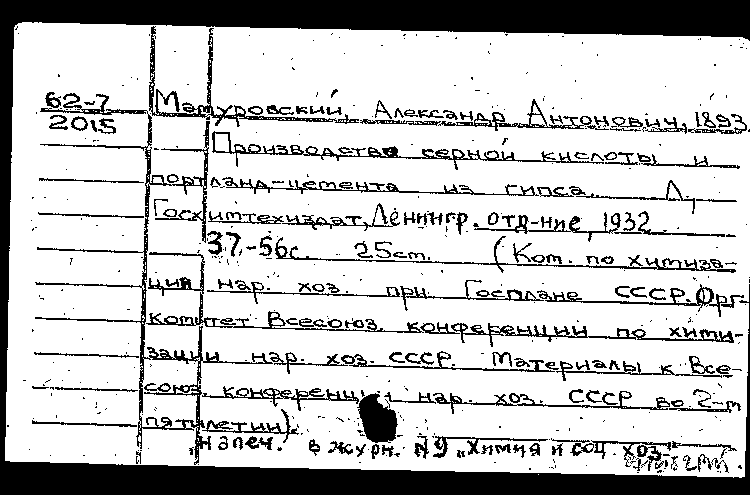 62-7
2015
Матуровский, Александр Антонович, 1893
Производства серной кислоты и
портланд-цемента из гипса. Л.,
Госхимтехиздат, Ленингр. отд-ние, 1932
37-56с. 25см. (Ком. по химиза-
ции нар. хоз. при Госплане СССР. Орг-
комитет Всесоюз. конференции по хими-
зации нар. хоз. СССР. Материалы к Все-
союз. конференции нар. хоз. СССР во 2-м
пятилетии).
"Напеч. в журн. №9 "Химия и соц. хоз."